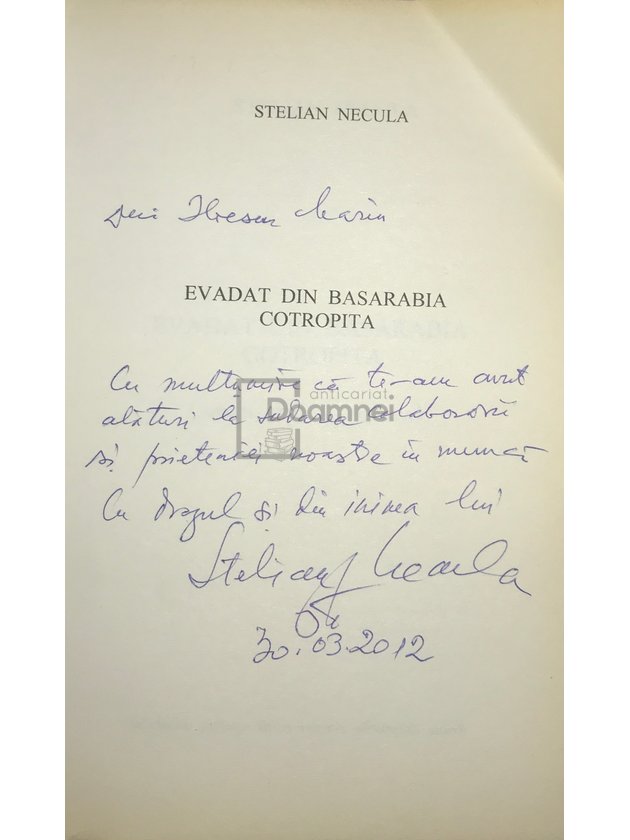 STELIAN NECULA
Ilrescu Marin
EVADAT DIN BASARABIA
COTROPITA
Cu mulțumire că te-am avut
anticariat
Doamnei
alături la colaborării
și prieteniei noastre în muncă
Cu dragul și din inimea lui
Stelian Necula
30.03.2012